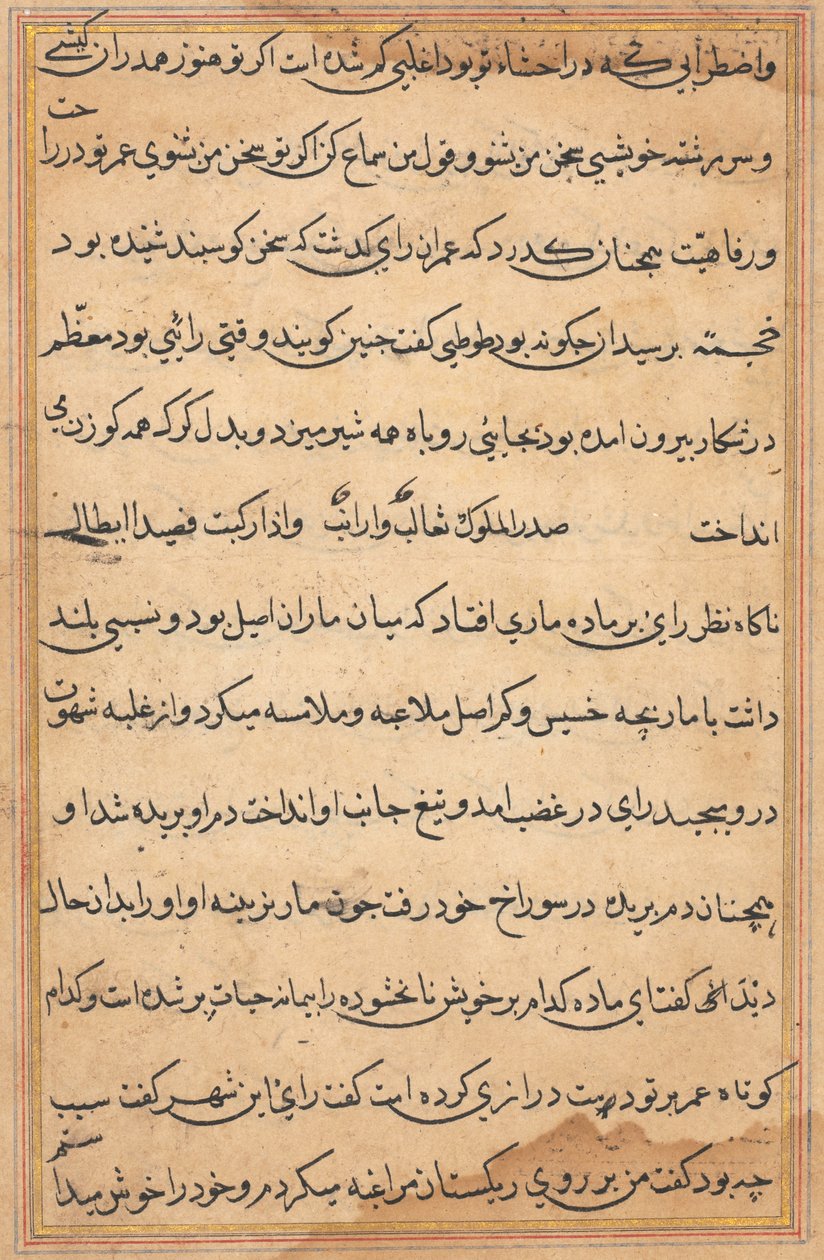 واضطرابي كه در احشاء تو بود اغلبي كم شده است اكر تو هنوز همدران كيشي
و سر رشته خويشي سخن من بشنو و قول من سماع كن اكر تو سخن من بشنوي عمر تو در راحت
ورفاهيّت همچنان كذرد كه عمران راي كذشت كه سخن كوسبند شنيده بود
خجسته برسيد ان جكونه بود طوطي كفت جنين كويند وقتي رايي بود معظّم
در شكار بيرون امده بود بجايئي روباه همه شير ميزد و بدل كرك همه كوزن مي
انداخت صدر الملوك ثعالب وارانب واذا ركبت فصيد الابطال
ناكاه نظر راي بر ماده ماري افتاد كه ميان ماران اصيل بود و نسبي بلند
داشت با مار بچه خسيس و كم اصل ملاعبه و ملامسه ميكرد و از غلبه شهوت
درو ميبجيد راي در غضب امد و تيغ جانب او انداخت دم او بريده شد او
همچنان دم بريده در سوراخ خود رفت جون مار نرينه او او را بدان حال
ديد كفت اي ماده كدام بر خويش نابخشوده را بيمانه حيات بر شده است و كدام
كوتاه عمر بر تو دست درازي كرده است كفت راي اين شهر كفت سبب
چه بود كفت من بر روي ريكستان مراغبه ميكردم و خود را خوش ميداشتم